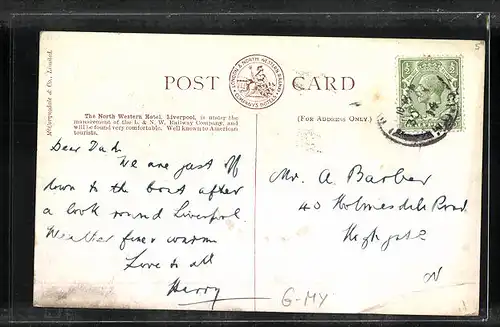 McCorquodale & Co., Limited.
POST CARD
LONDON & NORTH WESTERN RAILWAY
COMPANY'S HOTELS
The North Western Hotel, Liverpool, is under the
management of the L. & N. W. Railway Company, and
will be found very comfortable. Well known to American
tourists.
(FOR ADDRESS ONLY.)
Dear Dad.
We are just off
down to the boat after
a look round Liverpool.
Weather fine & warm
Love to all
Harry
Mr. A. Barber
40 Holmesdale Road
Highgate
N
G-MY